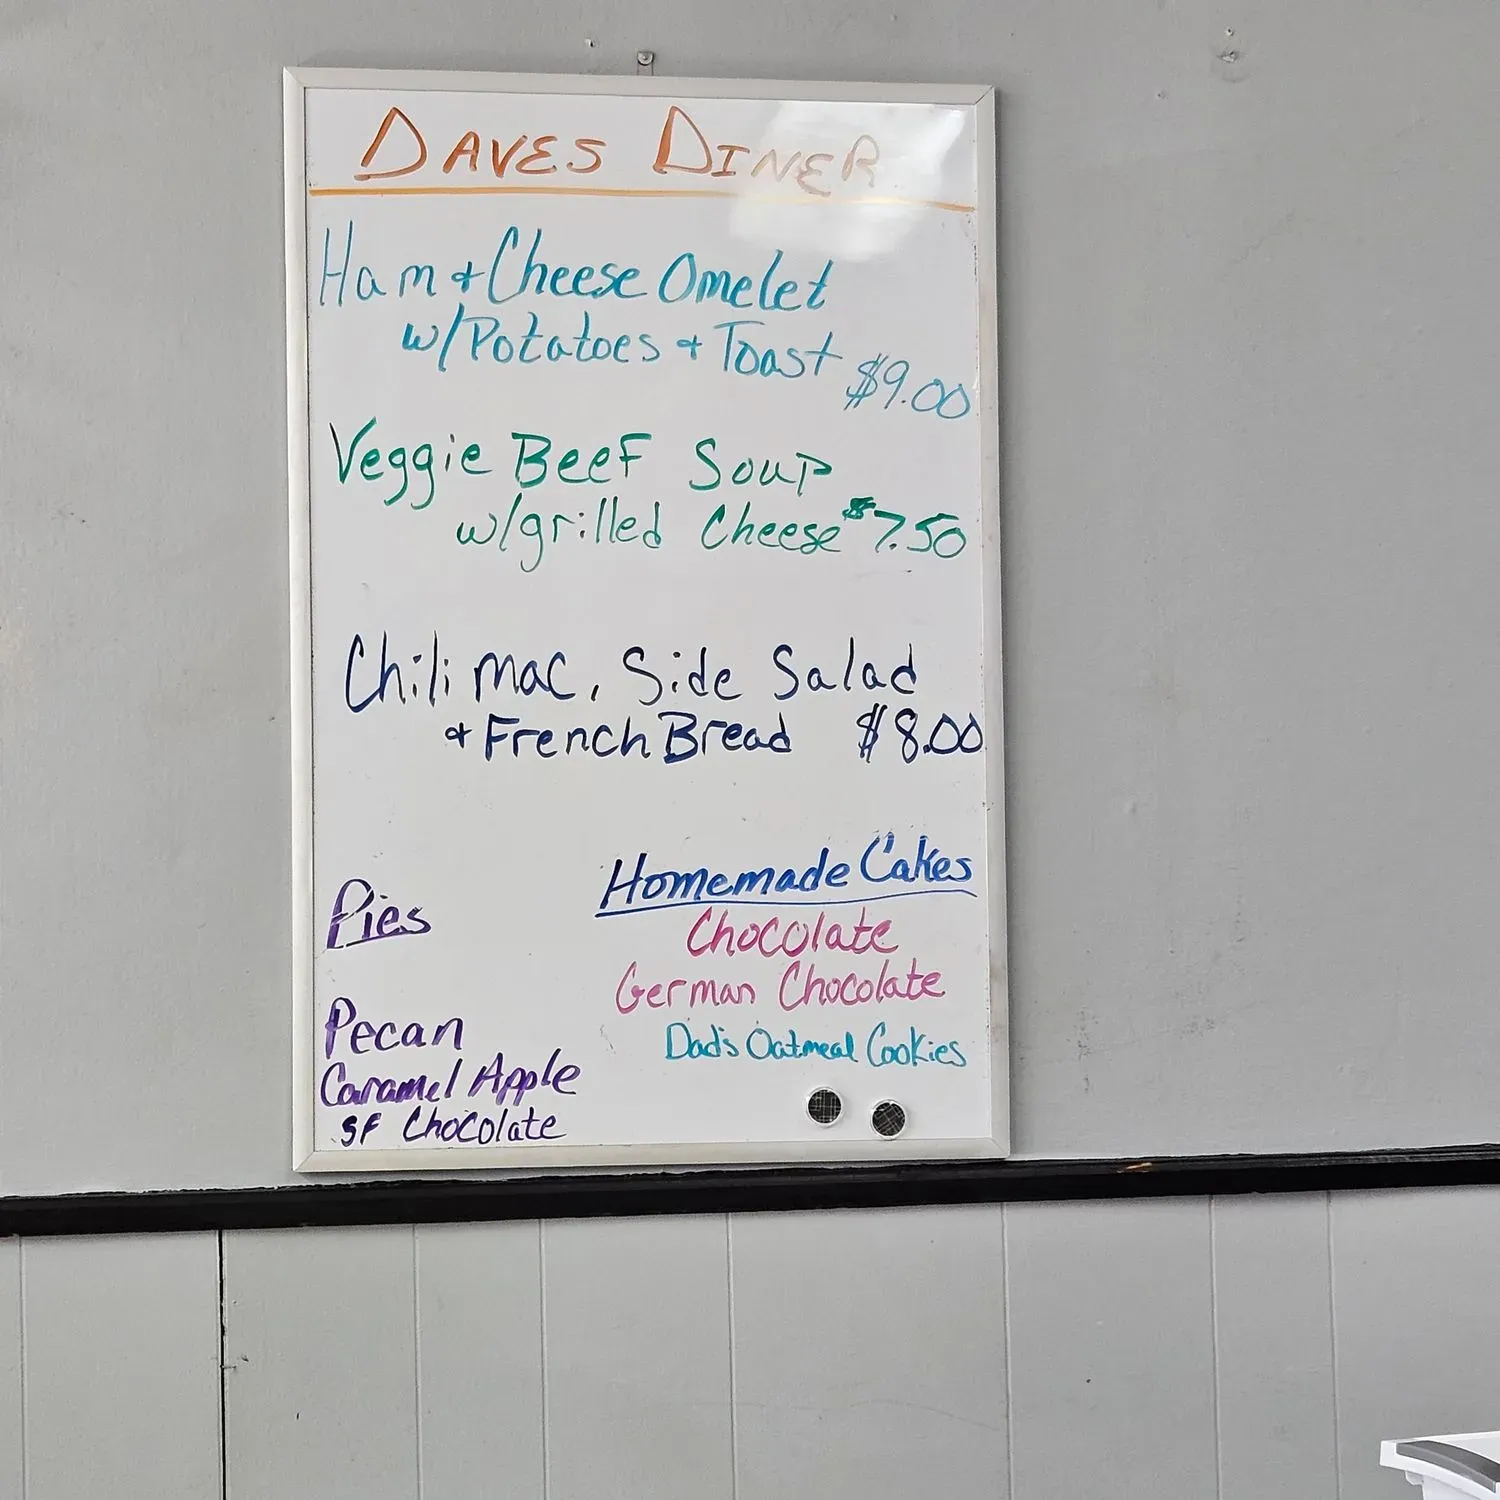 DAVES DINER
Ham + Cheese Omelet
w/Potatoes + Toast $9.00
Veggie Beef Soup
w/grilled Cheese $7.50
Chili mac, Side Salad
+ French Bread $8.00
Pies
Pecan
Caramel Apple
SF Chocolate
Homemade Cakes
Chocolate
German Chocolate
Dad's Oatmeal Cookies